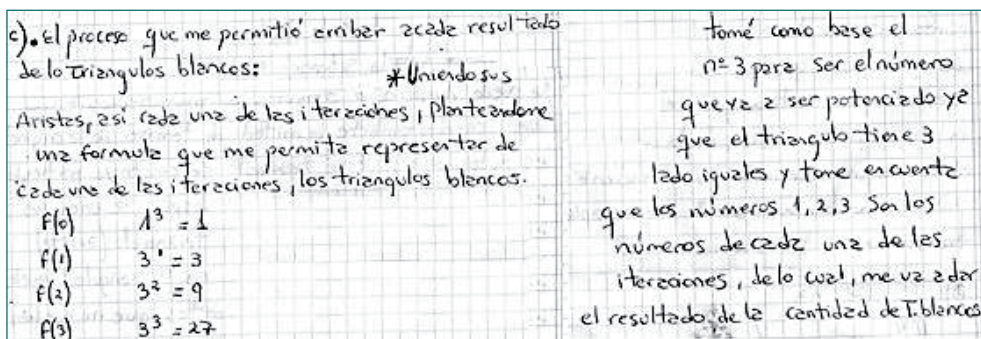 c). El proceso que me permitió arribar acada resultado
de lo Triangulos blancos: *Uniendo sus
Aristas, asi cada una de las iteraciones, Planteandome
una formula que me permita representar de
cada una de las iteraciones, los triangulos blancos.
f(0) 1³ = 1
f(1) 3¹ = 3
f(2) 3² = 9
f(3) 3³ = 27
tomé como base el
nº 3 para ser el número
que va a ser potenciado ya
que el triangulo tiene 3
lado iguales y tome en cuenta
que los números 1, 2, 3 Son los
números de cada una de las
iteraciones, de lo cual, me va a dar
el resultado de la cantidad de T. blancos